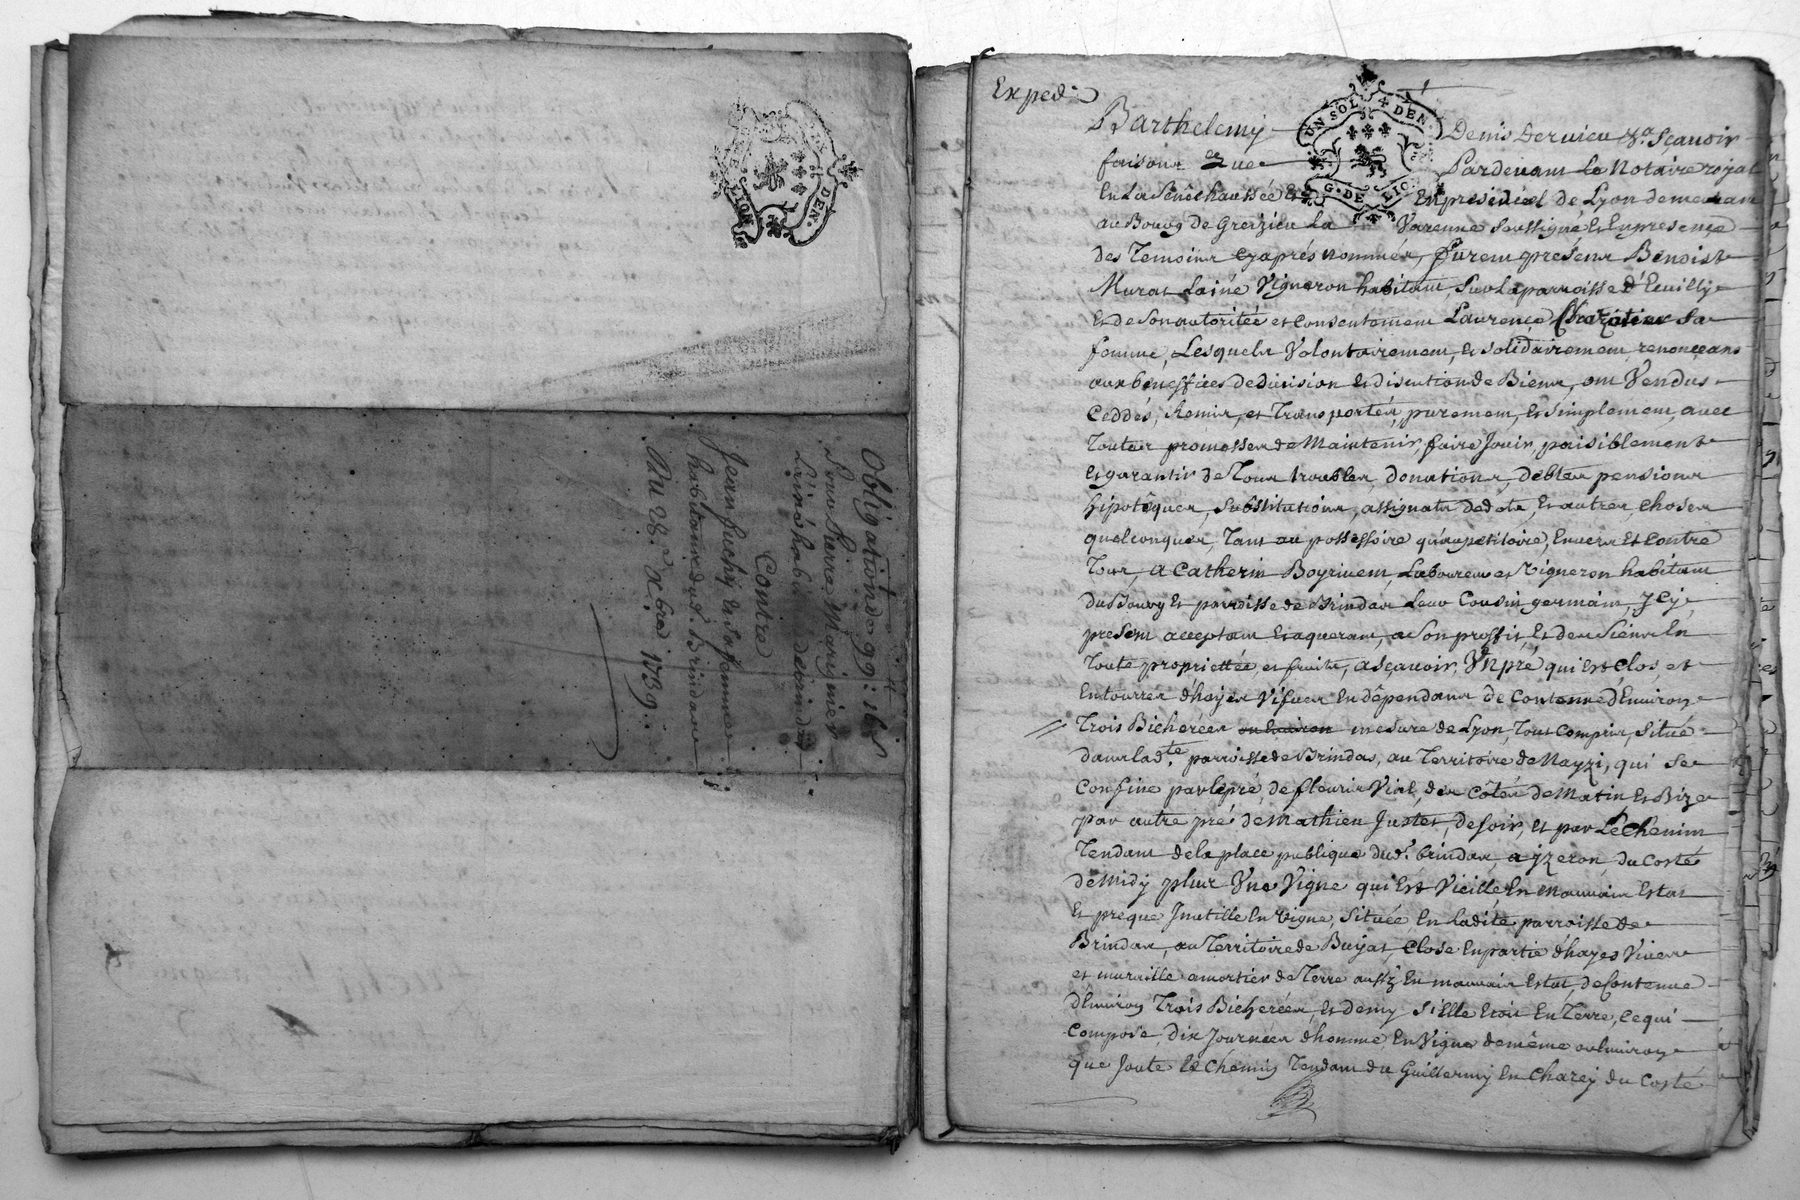 Obligation de 99: 16
Pour Pierre Marignier
habt. de Brindas
Contre
Jean
habitants dud. Brindas
Du 28e. Xbre 1739.
UN SOL DEN.
G. DE LIO.
Exped.
Barthelemy Denis Dervieu Sçavoir
faisons que Pardevant Le Notaire royal
En La Sénéchaussée Et présidial de Lyon demeurant
au Bourg de Greizieu La Varenne Soussigné Et En presence
des Temoins Cyaprés nommés, furent présens Benoist
Murat Lainé Vigneron habitant, Sur La parroisse d'Ecuilly
Et de Son autorité et Consentement Laurence Sa
femme, Lesquels Volontairement, Et Solidairement renonceans
aux beneffices de division Et discution de Biens, ont Vendus
Ceddés, Remis, et Transportés, purement, Et Simplement, avec
Toutes promesses de Maintenir, faire Jouir, paisiblement
Et garantir de Tous troubles, donations, debtes pensions
hipotêques, Substitutions, assignats de dote, Et autres, choses
quelconques, Tant au possessoire qu'au petitoire, Envers Et Contre
Tous, a Catherin Boyrivent, Laboureur et Vigneron habitant
du Bourg Et parroisse de Brindas Leur Cousin germain, Jcy
present acceptant Et aquerant, a Son proffit, Et des Siens En
Toute propriettée, et fruits, ascavoir, Un pré qui Est clos, et
Entourrer d'hayes Vifves En dépendans de Contenue d'Environ
Trois Bicherées ou Environ mesure de Lyon, Tout Compris, Situé
dans lad.te parroisse de Brindas, au Territoire de Nayzi, qui Se
Confine par le pré, de fleurie Vial, des Côtés de Matin, Et Bize
par autre pré de Mathieu Juster, de Soir, Et par Le Chemin
Tendant de la place publique dud. brindas, a yzeron, du Costé
de Midy plus Une Vigne qui Est Vieille En Mauvais Estat
Et preque Jnutille En Vigne, Située, En Ladite parroisse de
Brindas, au Territoire de Buyat, Close En partie d'hayes Vives
et muraille a mortier de Terre aussy En mauvais Estat, de Contenue
d'Environ Trois Bicherées, Et demy Si Elle Etoit En Terre, Ce qui
Compose, dix Journées d'homme En Vigne de même ou Environ
que Joute Le Chemin Tendant du Guillermy En Charey du Costé